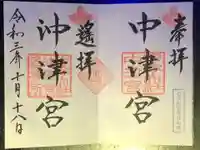 奉拝
中津宮
遙拝
沖津宮
令和三年十月十八日